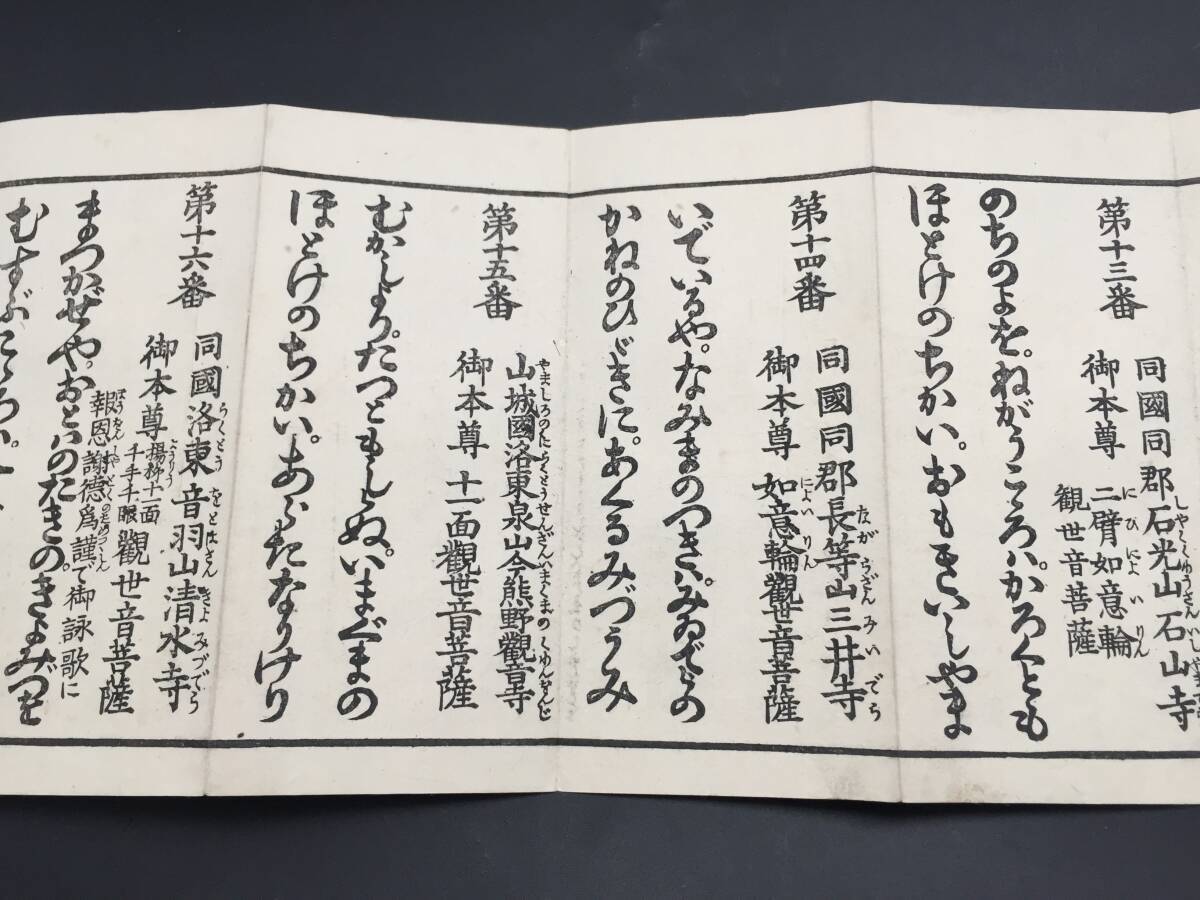 第十三番
同國同郡石光山石山寺
御本尊 二臂如意輪
観世音菩薩
のちのよを。ねがうこゝろハ。かろくとも
ほとけのちかい。おもきいしやま
第十四番
同國同郡長等山三井寺
御本尊 如意輪觀世音菩薩
いでいるや。なみまのつきハ。みゐでらの
かねのひゞきに。あくるみづうみ
第十五番
山城國洛東泉山今熊野觀音寺
御本尊 十一面觀世音菩薩
むかしより。たつともしらぬ。いまぐまの
ほとけのちかい。あらたなりけり
第十六番
同國洛東音羽山清水寺
御本尊 楊柳十一面千手千眼觀世音菩薩
報恩謝德爲謹で御詠歌に
まつかぜや。おとハのたきの。きよみづを
むすぶこゝろハ。